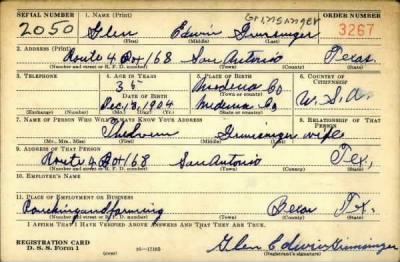 SERIAL NUMBER 1. NAME (Print) Grimsinger ORDER NUMBER
2050 Glen Edwin Grimsinger 3267
(First) (Middle) (Last)
2. ADDRESS (Print)
Route 4 Box 168 San Antonio Texas
(Number and street or R. F. D. number) (Town) (County) (State)
3. TELEPHONE 4. AGE IN YEARS 5. PLACE OF BIRTH 6. COUNTRY OF CITIZENSHIP
35 Medina Co
DATE OF BIRTH (Town or county)
Dec, 13, 1904 Medina Co U. S. A.
(Exchange) (Number) (Mo.) (Day) (Yr.) (State or country)
7. NAME OF PERSON WHO WILL ALWAYS KNOW YOUR ADDRESS 8. RELATIONSHIP OF THAT PERSON
Grimsinger wife
(Mr., Mrs., Miss) (First) (Middle) (Last)
9. ADDRESS OF THAT PERSON
Route 4 Box 168 San Antonio Tex,
(Number and street or R. F. D. number) (Town) (County) (State)
10. EMPLOYER'S NAME
11. PLACE OF EMPLOYMENT OR BUSINESS
Ranching and farming Bexar Tex.
(Number and street or R. F. D. number) (Town) (County) (State)
I AFFIRM THAT I HAVE VERIFIED ABOVE ANSWERS AND THAT THEY ARE TRUE.
REGISTRATION CARD
D. S. S. Form 1 (over) Glen Edwin Grimsinger
(Registrant's signature)